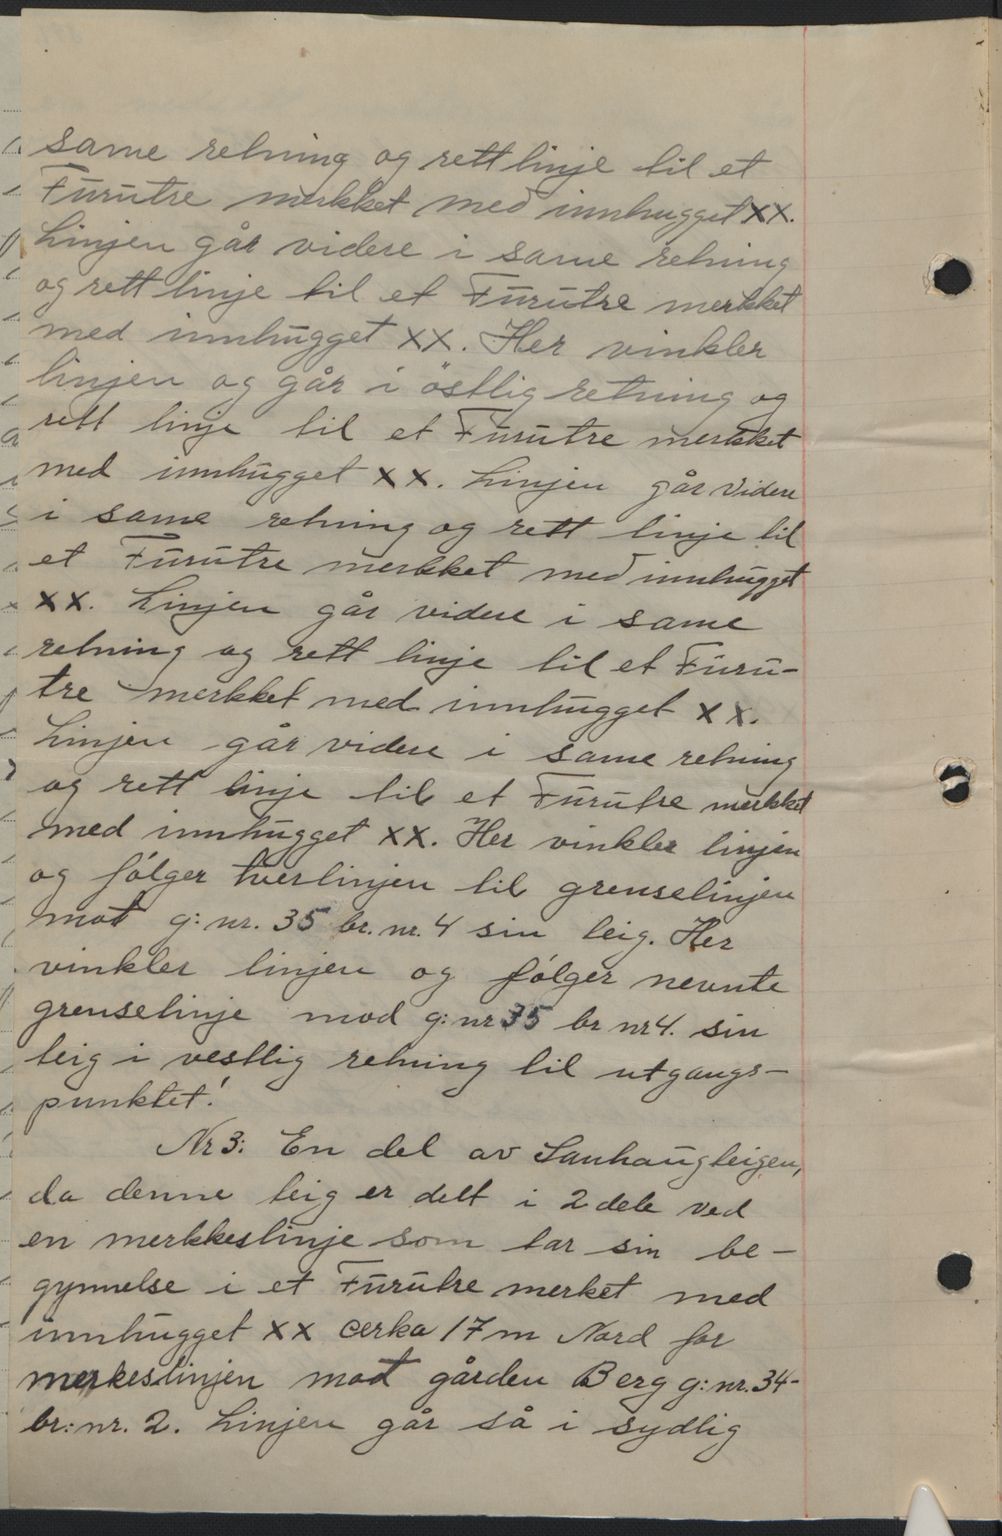 same retning og rett linje til et
Furutre merkket med innhugget XX.
Linjen går videre i same retning
og rett linje til et Furutre merkket
med innhugget XX. Her vinkler
linjen og går i östlig retning og
rett linje til et Furutre merkket
med innhugget XX. Linjen går videre
i same retning og rett linje til
et Furutre merkket med innhugget
XX. Linjen går videre i same
retning og rett linje til et Furu-
tre merkket med innhugget XX.
Linjen går videre i same retning
og rett linje til et Furutre merkket
med innhugget XX. Her vinkler linjen
og fólger tverlinjen til grenselinjen
mot g:nr. 35 br. nr. 4 sin teig. Her
vinkler linjen og fólger nevnte
grenselinje mod g:nr 35 br nr 4. sin
teig i vestlig retning til utgangs-
punktet!
Nr 3: En del av Sauhaugteigen,
da denne teig er delt i 2 dele ved
en merkkeslinje som tar sin be-
gynnelse i et Furutre merket med
innhugget XX cerka 17 m Nord for
merkeslinjen mot gården Berg g:nr. 34-
br:nr. 2. Linjen går så i sydlig